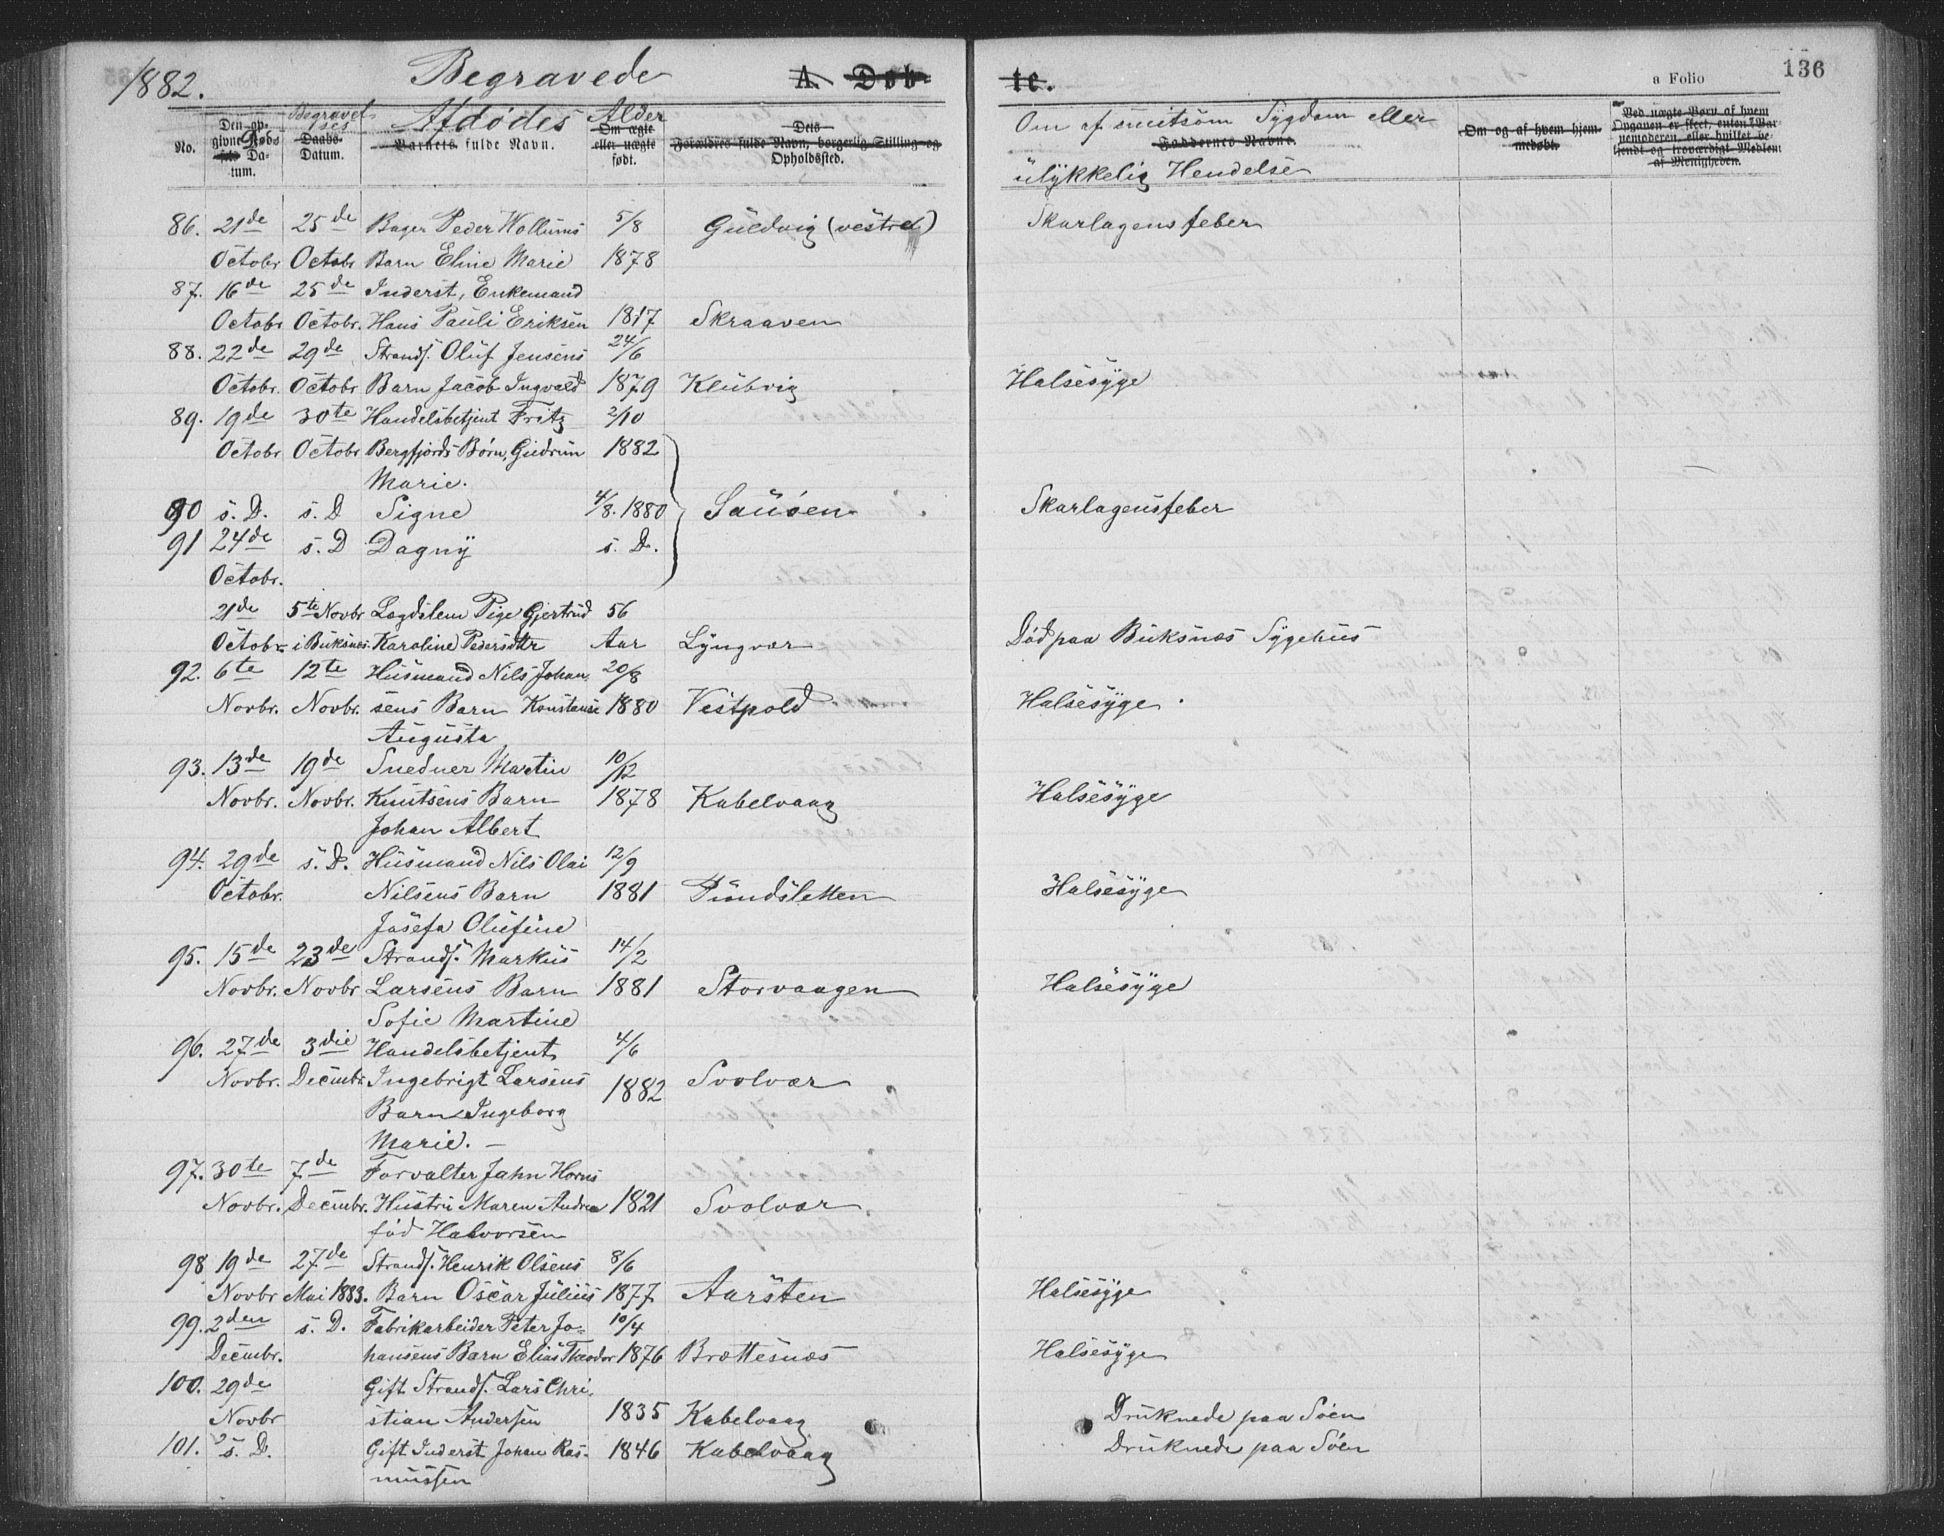 1882. Begravede A. Døb- te. a Folio 136
No. Den opgivne Døds Datum. Begravelses Daabs Datum. Afdødes Barnets fulde Navn. Alder Om ægte eller uægte født. Dets Forældres fulde Navn, borgerlig Stilling og Opholdssted. Om af smitsom Sygdom eller ulykkelig Hendelse Faddernes Navne. Om og af hvem hjemmedøbt.
86. 21de 25de Bager Peder Wollums 5/8 Guldvig (vestre) Skarlagensfeber
Octobr Octobr Barn Eline Marie 1878
87. 16de 25de Inderst, Enkemand
Octobr Octobr. Hans Pauli Eriksen 1817 Skraaven
88. 22de 29de Strands. Oluf Jensens 24/6
Octobr. Octobr Barn Jacob Ingvald 1879 Klubvig Halsesyge
89. 19de 30te Handelsbetjent Fritz 2/10
Octobr Octobr Bergfjords Børn, Gudrun 1882
Marie.
90 s. D. s. D Signe 4/8. 1880 Sausen Skarlagensfeber
91 24de s. D Dagny s. D.
Octobr.
21de 5te Novbr Lægdslem Pige Gjertrud 56
Octobr. i Buksnæs. Karoline Pedersdtr Aar Lyngvær Død paa Buksnæs Sygehus
92. 6te 12te Husmand Nils Johan 20/8
Novbr. Novbr. sens Barn Konstanse 1880 Vestpold Halsesyge.
Augusta
93. 13de 19de Snedker Martin 10/12
Novbr. Novbr. Knutsens Barn 1878 Kabelvaag Halsesyge
Johan Albert
94. 29de s. D. Husmand Nils Olai 12/9
Octobr. Nilsens Barn 1881 Pundsletten Halsesyge
Josefa Olufine
95. 15de 23de Strands. Markus 14/2
Novbr. Novbr Larsens Barn 1881 Storvaagen Halsesyge
Sofie Martine
96. 27de 3die Handelsbetjent 4/6
Novbr. Decmbr Ingebrigt Larsens 1882 Svolvær
Barn Ingeborg
Marie. —
97. 30te 7de Forvalter Jahn Horns
Novbr. Decmbr. Hustru Maren Andrea 1821 Svolvær
fød Halvorsen
98 19de 27de Strands. Henrik Olsens 8/6
Novbr Mai 1883. Barn Oscar Julius 1877 Aarsten Halsesyge
99. 2den s. D. Fabrikarbeider Peter Jo- 10/4
Decmbr. hansens Barn Elias Theodor 1876 Brættesnæs Halsesyge
100. 29de Gift Strands. Lars Chri-
Novbr stian Andersen 1835 Kabelvaag Druknede paa Søen
101. s. D. Gift Inderst Johan Ras- 1846 Kabelvaag Druknede paa Søen
mussen